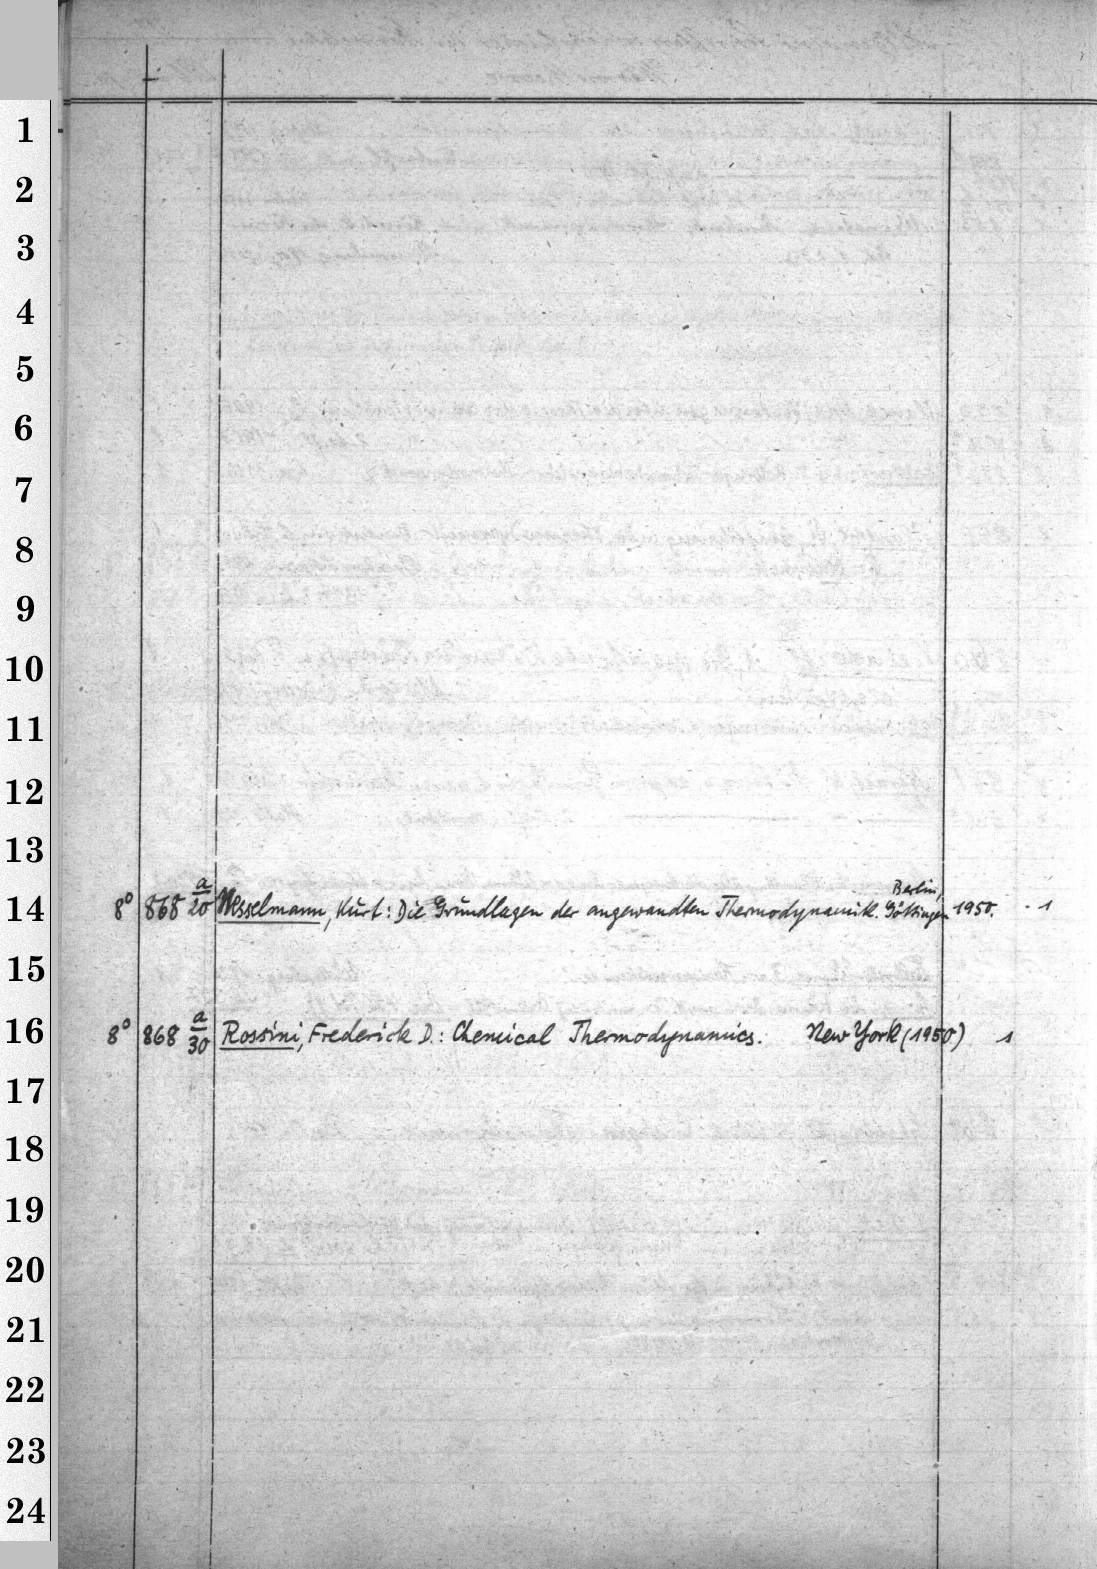 1
2
3
4
5
6
7
8
9
10
11
12
13
14 8° 868 a/20 Nesselmann, Kurt: Die Grundlagen der angewandten Thermodynamik. Berlin, Göttingen 1950. 1
15
16 8° 868 a/30 Rossini, Frederick D.: Chemical Thermodynamics. New York (1950) 1
17
18
19
20
21
22
23
24